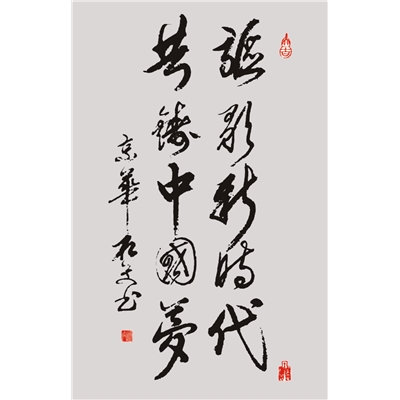 謳歌新時代
共鑄中國夢
京華石文书